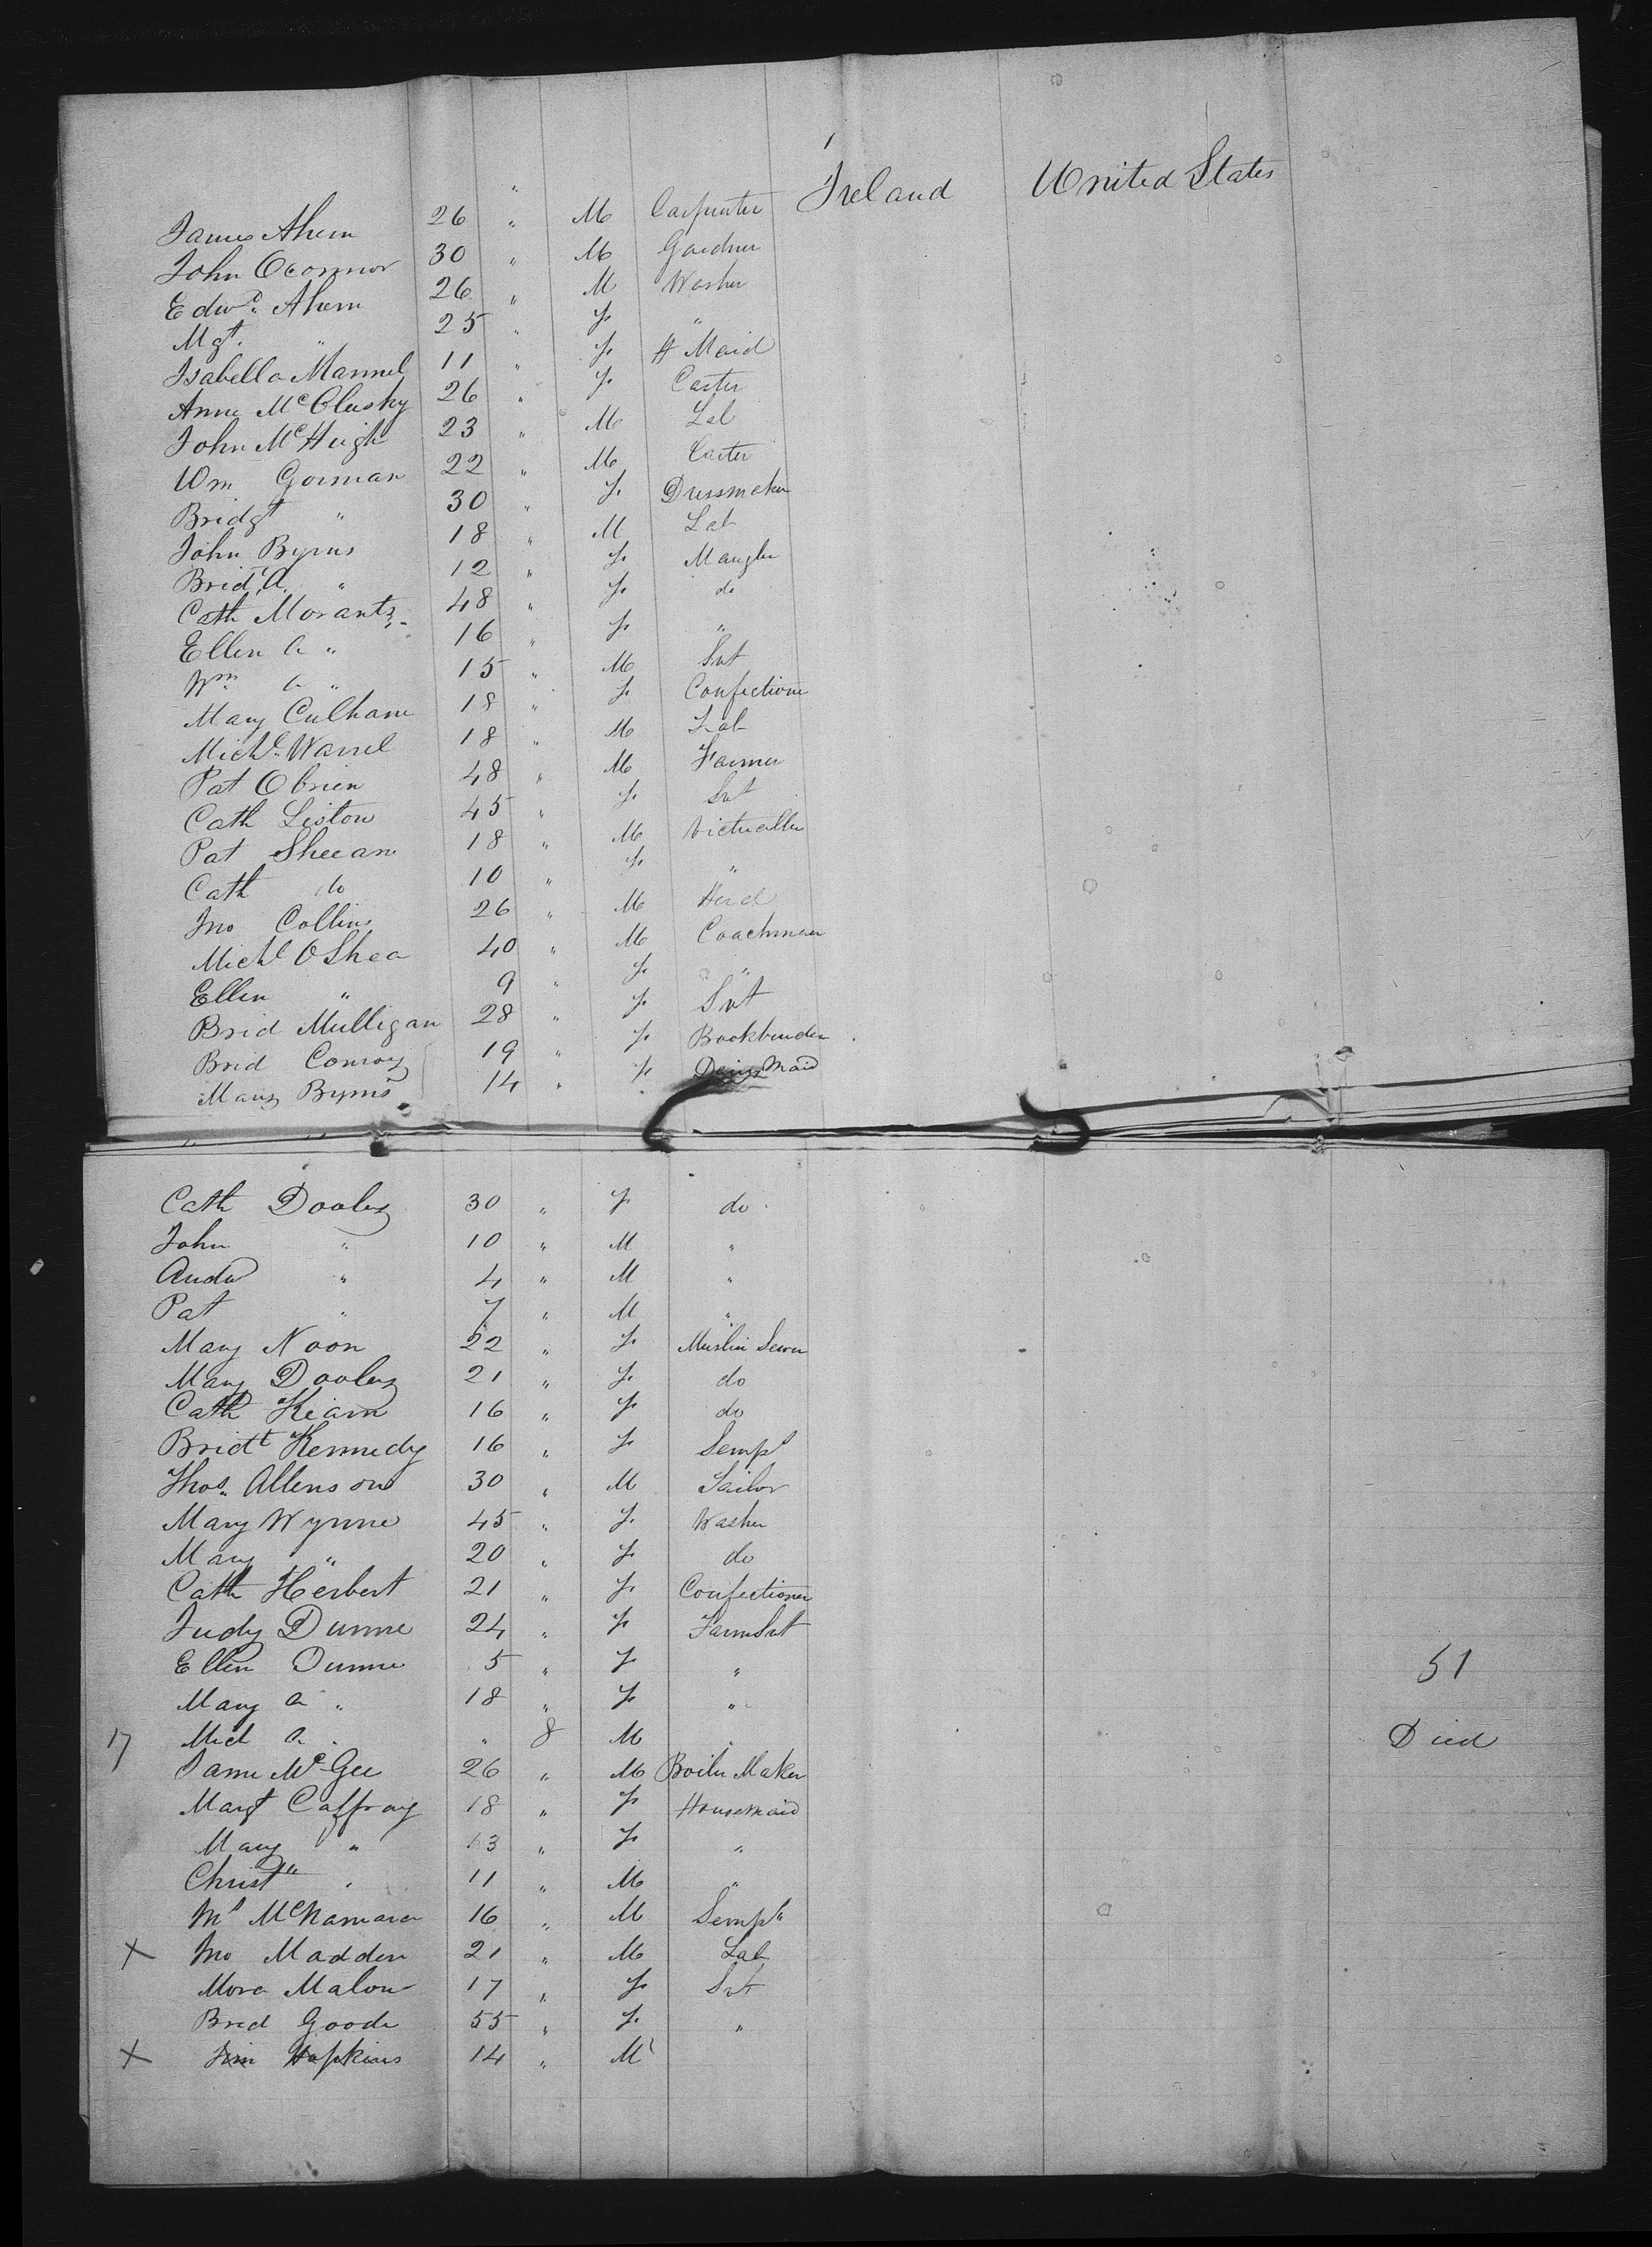 Ireland United States
James Ahern 26 " M Carpenter
John Oconnor 30 " M Gardner
Edwd. Ahern 26 " M Washer
Mgt. " 25 " F. "
Isabella Mannel 11 " F. H Maid
Anne McClusky 26 " F. Carter
John McHugh 23 " M Lab
Wm Gorman 22 " M Carter
Bridgt " 30 " F. Dressmaker
John Byrns 18 " M Lab
Bridt. A. " 12 " F. Mangler
Cath Morantz 48 " F. do
Ellen A " 16 " F. "
Wm. A " 15 " M Svt
Mary Culhane 18 " F. Confectione
Michl. Warrel 18 " M Lab
Pat Obrien 48 " M Farmer
Cath Liston 45 " F. Svt
Pat Sheean 18 " M Victualler
Cath do 10 " F. "
Jno Collins 26 " M Herd
Michl OShea 40 " M Coachman
Ellen " 9 " F. "
Brid Mulligan 28 " F. Svt
Brid Conroy 19 " F. Bookbinder
Mary Byrns 14 " F. Dairy Maid
Cath Dooley 30 " F. do
John " 10 " M "
Andw " 4 " M "
Pat " 7 " M "
Mary Noon 22 " F. Muslin Sewer
Mary Dooley 21 " F. do
Cath Kearn 16 " F. do
Bridt Kennedy 16 " F. Semps
Thos. Allenson 30 " M Tailor
Mary Wynne 45 " F. Washer
Mary " 20 " F. do
Cath Herbert 21 " F. Confectioner
Judy Dunne 24 " F. Farm Svt
Ellen Dunne 5 " F. " 51
Mary A " 18 " F. "
17 Mich A " " 8 M " Died
Jame McGee 26 " M Boiler Maker
Margt Caffray 18 " F. Housemaid
Mary " 13 " F. "
Christr " 11 " M "
Ms McNamara 16 " M Semps
X Jno Madden 21 " M Lab
Mora Malone 17 " F. Svt
Brid Goode 55 " F. "
X Jim Hopkins 14 " M